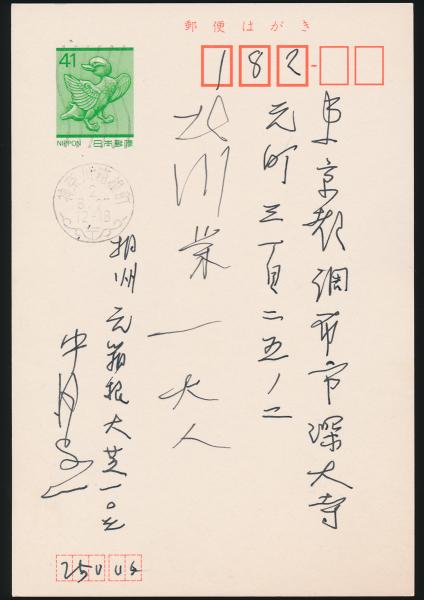 郵便はがき
41
NIPPON 日本郵便
182-
東京都調布市深大寺
元町三丁目二五ノ二
北川栄一大人
相州元箱根大芝一〇
2
12-18
250 04